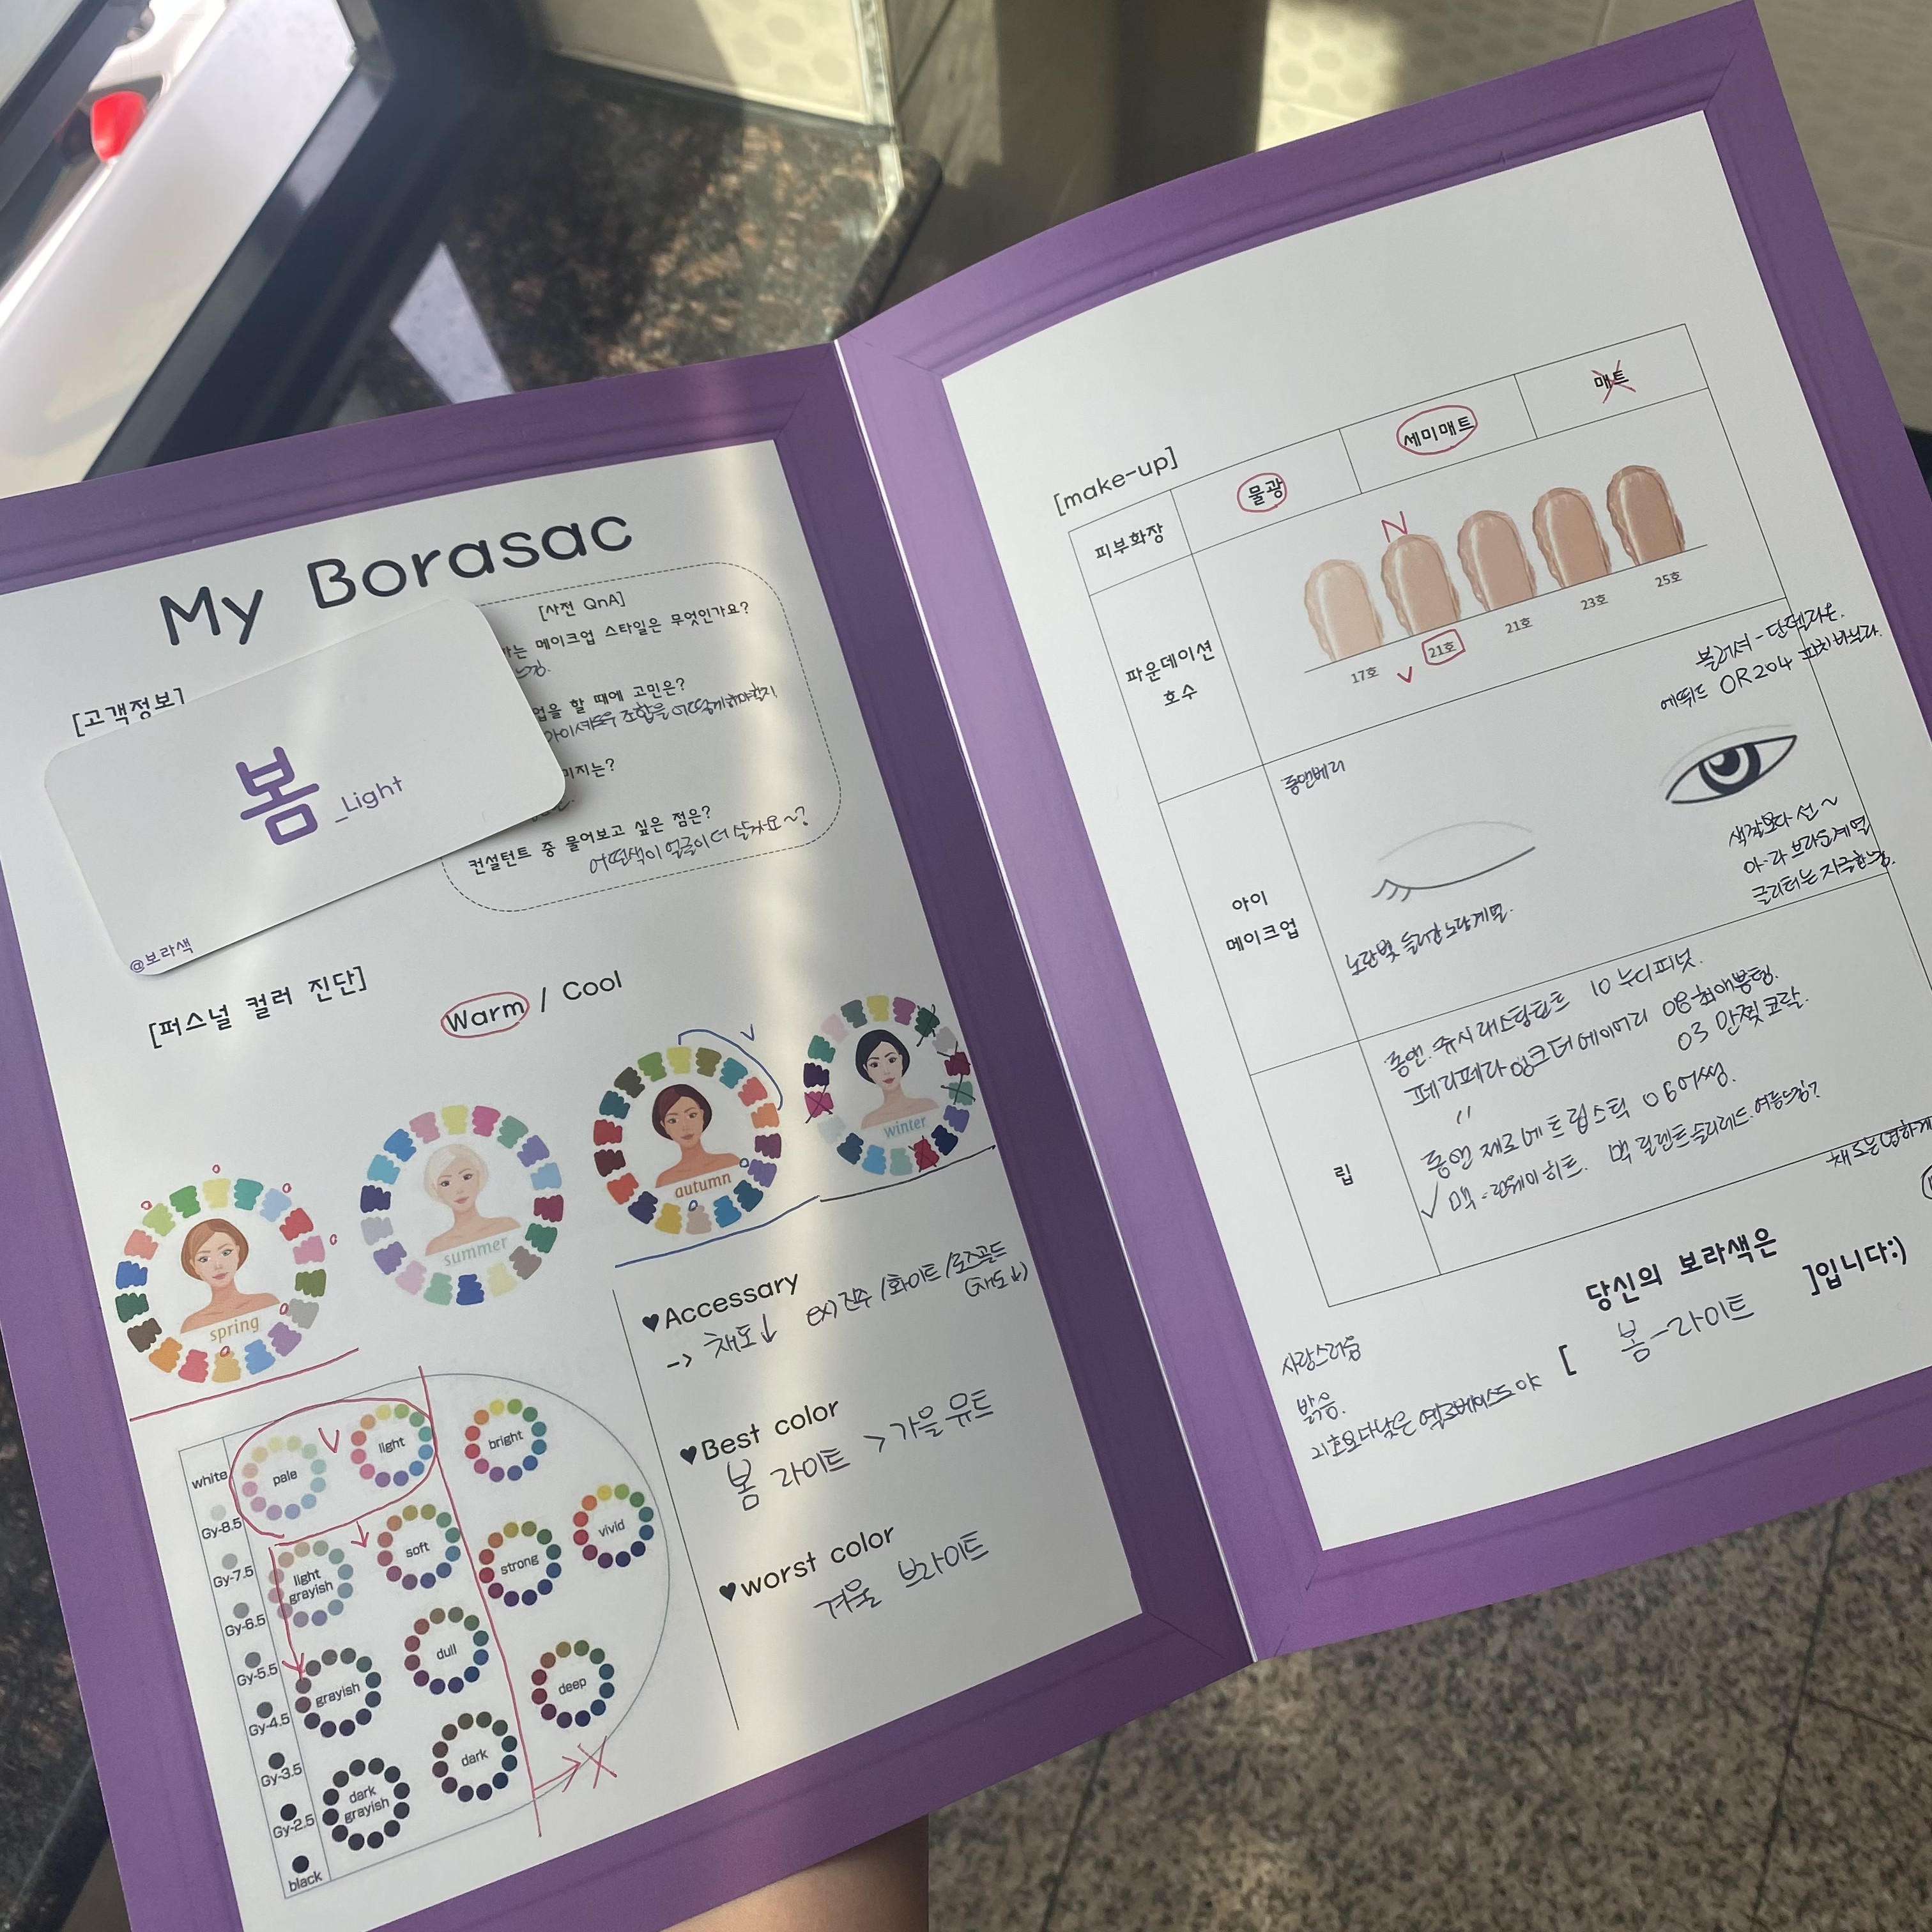 My Borasac
[고객정보]
봄_Light
@보라색
[사전 QnA]
는 메이크업 스타일은 무엇인가요?
느낌.
업을 할 때에 고민은?
아이섀도우 조합을 어떻게 해야할지
미지는?
컨설턴트 중 물어보고 싶은 점은?
어떤색이 얼굴이 더 살까요~?
[퍼스널 컬러 진단]
Warm / Cool
spring
summer
autumn
winter
white
Gy-8.5
Gy-7.5
Gy-6.5
Gy-5.5
Gy-4.5
Gy-3.5
Gy-2.5
black
pale
light
bright
light grayish
soft
strong
vivid
grayish
dull
deep
dark grayish
dark
X
♥Accessary
-> 채도↓ ex) 진주 /화이트 /로즈골드
(채도↓)
♥Best color
봄 라이트 > 가을 뮤트
♥worst color
겨울 브라이트
[make-up]
피부화장
물광
세미매트
매트
파운데이션
호수
N
17호
21호
21호
23호
25호
블러셔 - 단델라온.
에뛰드 OR204 피치바닐라.
아이
메이크업
롬앤베리
노란빛 들어간 노랑계열.
색깔보다 선~
아-라 브라운계열
글리터는 자글한느낌.
립
롬앤. 쥬시래스팅틴트 10 누디피넛.
페리페라 잉크더에어리 08 최애뿜템.
〃 03 만찢코랄.
롬앤 제로메트립스틱 06 어썸.
✓ 맥 - 런웨이히트. 맥
당신의 보라색은
[ 봄-라이트 ]입니다:)
사랑스러움
밝음.
21호보다낮은 옐로베이스도야